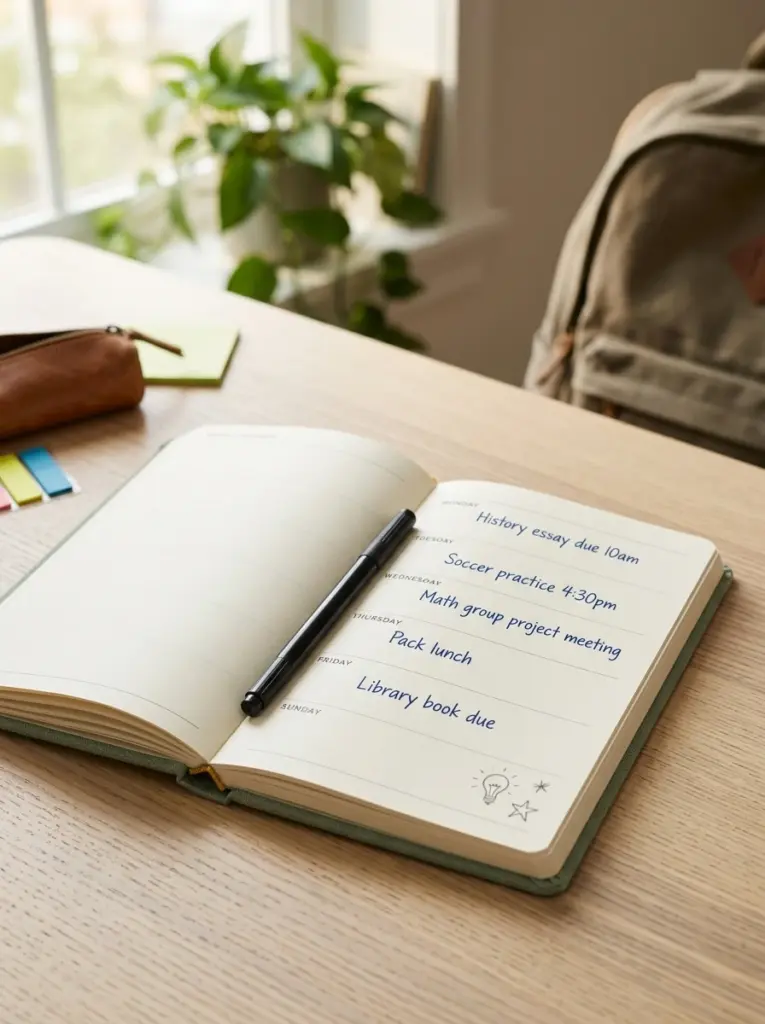 MONDAY
History essay due 10am
TUESDAY
Soccer practice 4:30pm
WEDNESDAY
Math group project meeting
THURSDAY
Pack lunch
FRIDAY
Library book due
SUNDAY